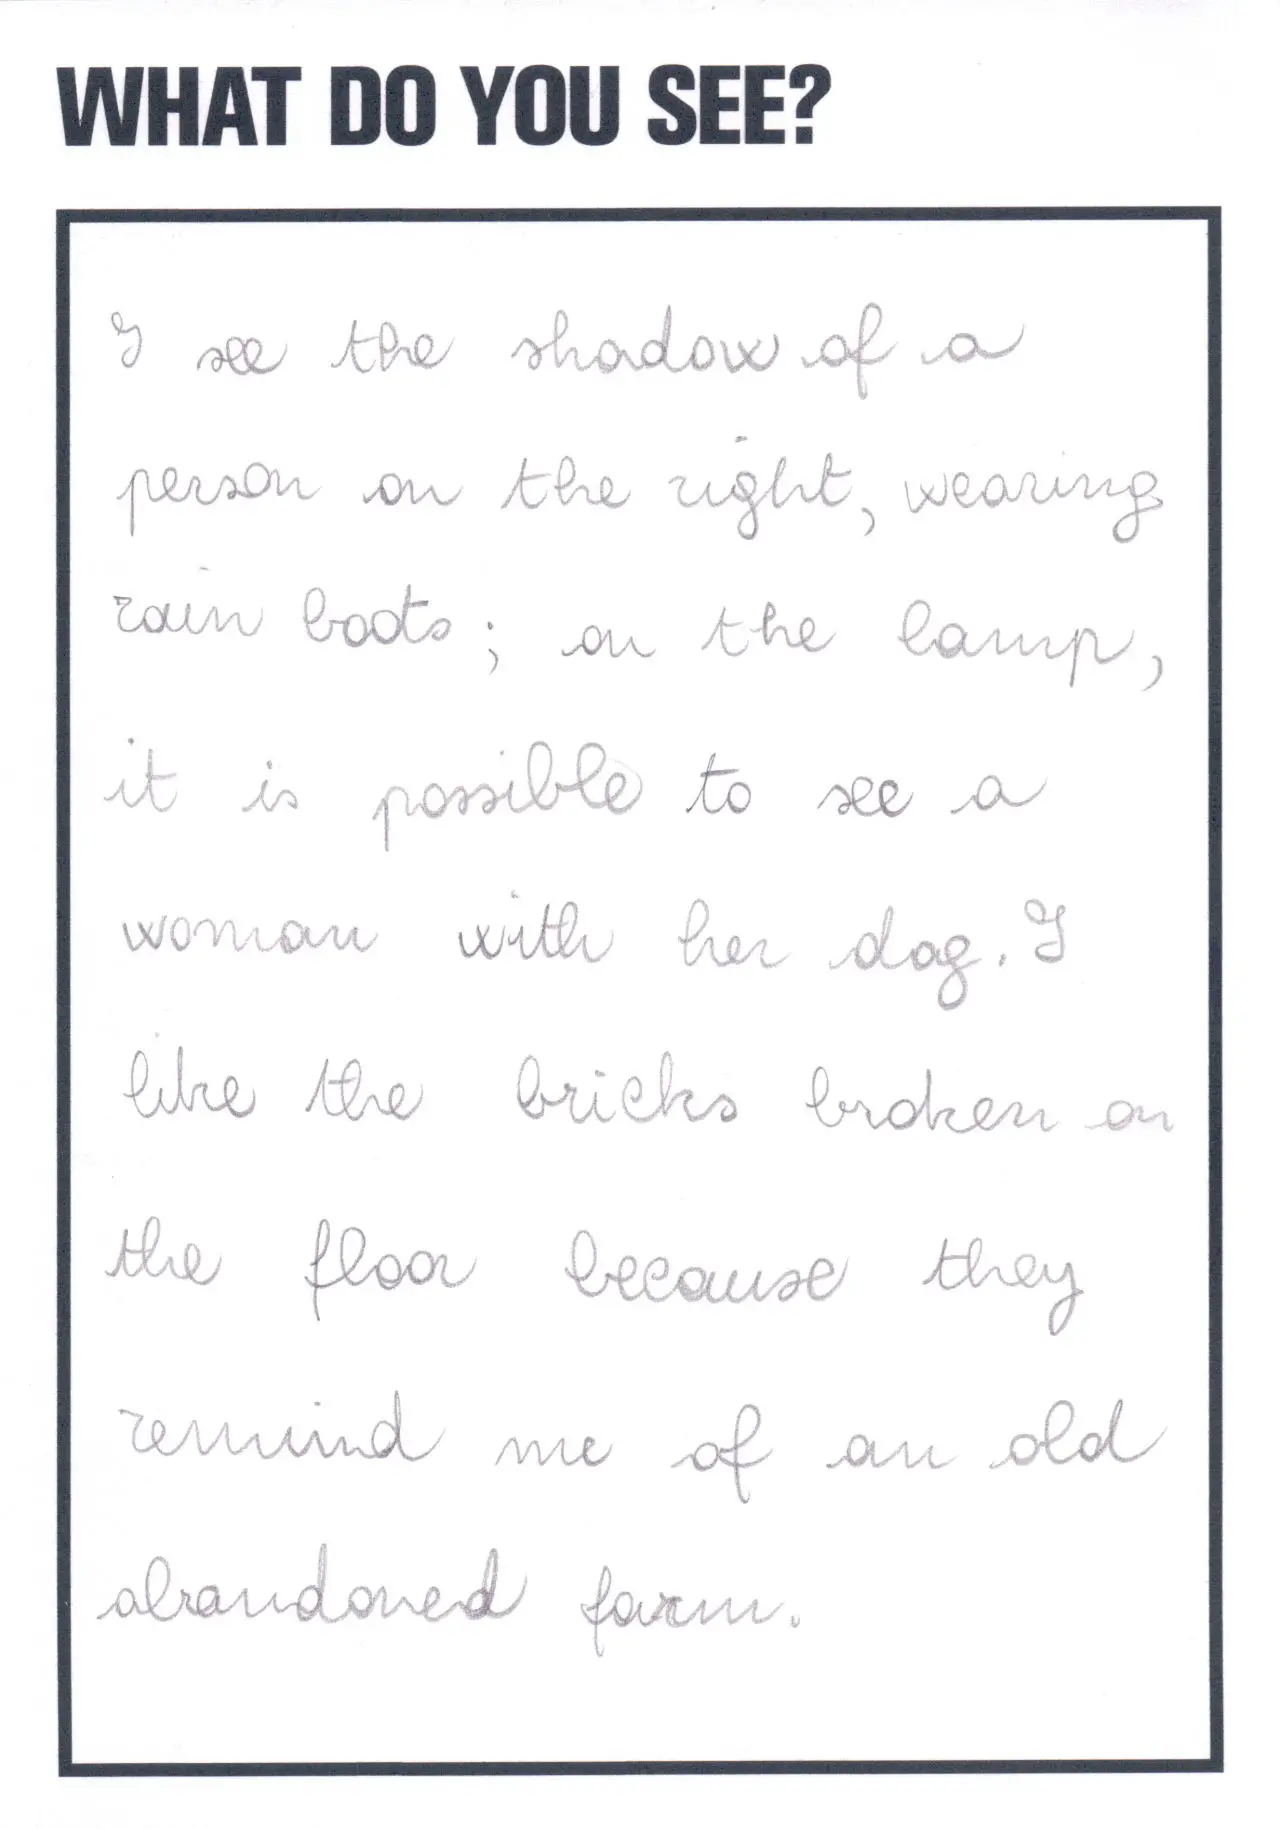 WHAT DO YOU SEE?
I see the shadow of a
person on the right, wearing
rain boots; on the lamp,
it is possible to see a
woman with her dog. I
like the bricks broken on
the floor because they
remind me of an old
abandoned farm.